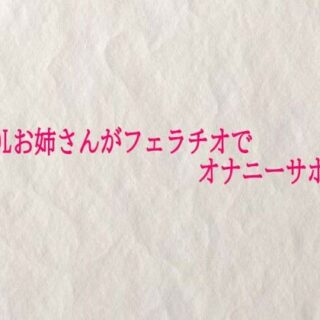 OLお姉さんがフェラチオで
オナニーサポ